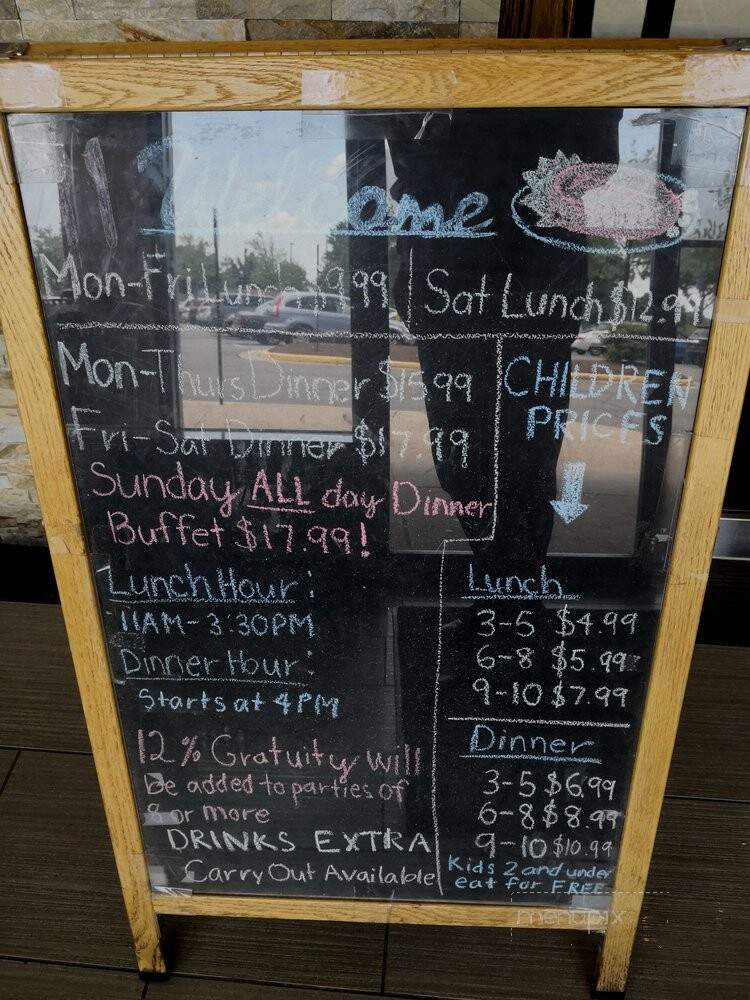 Welcome
Mon-Fri Lunch $9.99
Sat Lunch $12.99
Mon-Thurs Dinner $15.99
Fri-Sat Dinner $17.99
Sunday ALL day Dinner
Buffet $17.99!
CHILDREN
PRICES
Lunch Hour:
11AM-3:30PM
Dinner Hour:
Starts at 4PM
12% Gratuity will
be added to parties of
8 or more
DRINKS EXTRA
Carry Out Available
Lunch
3-5 $4.99
6-8 $5.99
9-10 $7.99
Dinner
3-5 $6.99
6-8 $8.99
9-10 $10.99
Kids 2 and under
eat for FREE
menupix